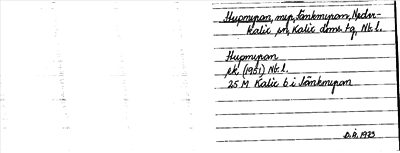 Hupmyran, myr, Tönkmyran, Neder-
Kalix sn, Kalix doms. tg, Nb. l.
Hupmyran
ek. (1951) Nb. l.
25 M Kalix 6 i Tönkmyran
D.O. 1973